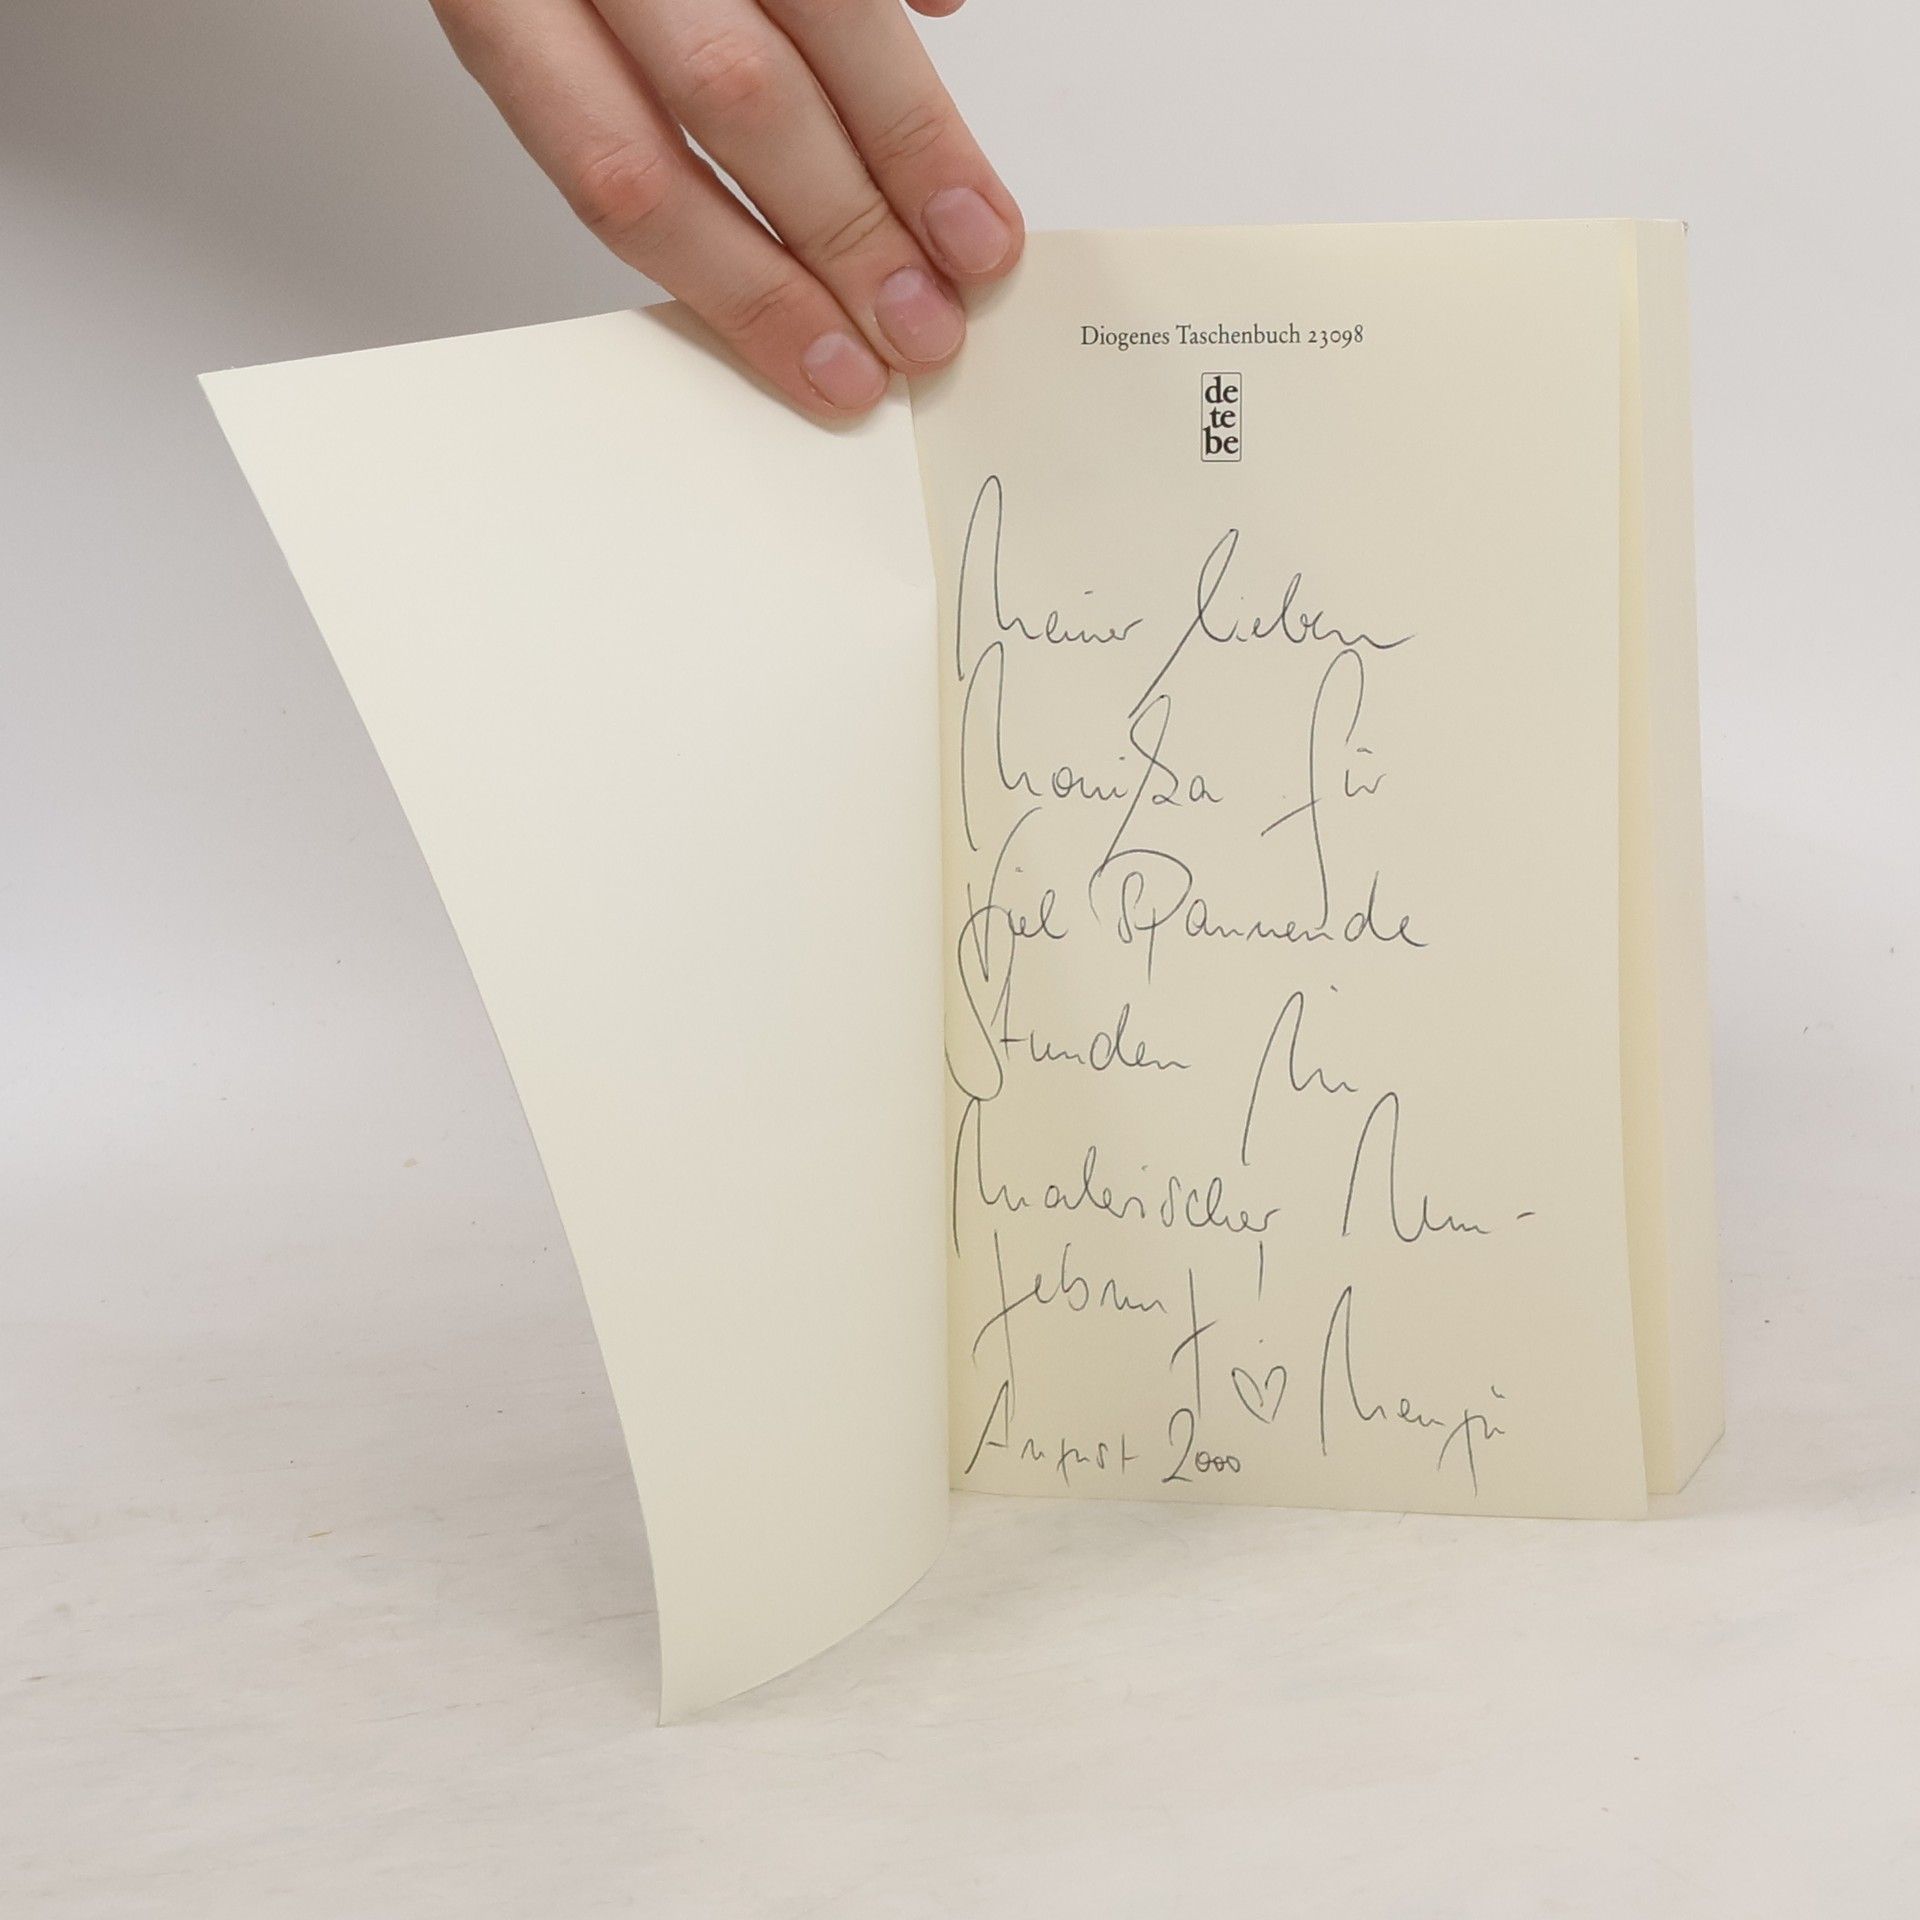 Diogenes Taschenbuch 23098
de
te
be
Meiner lieben
Monika für
Viel Spannende
Stunden in
Malerischer Um-
gebung!
♡
August 2000